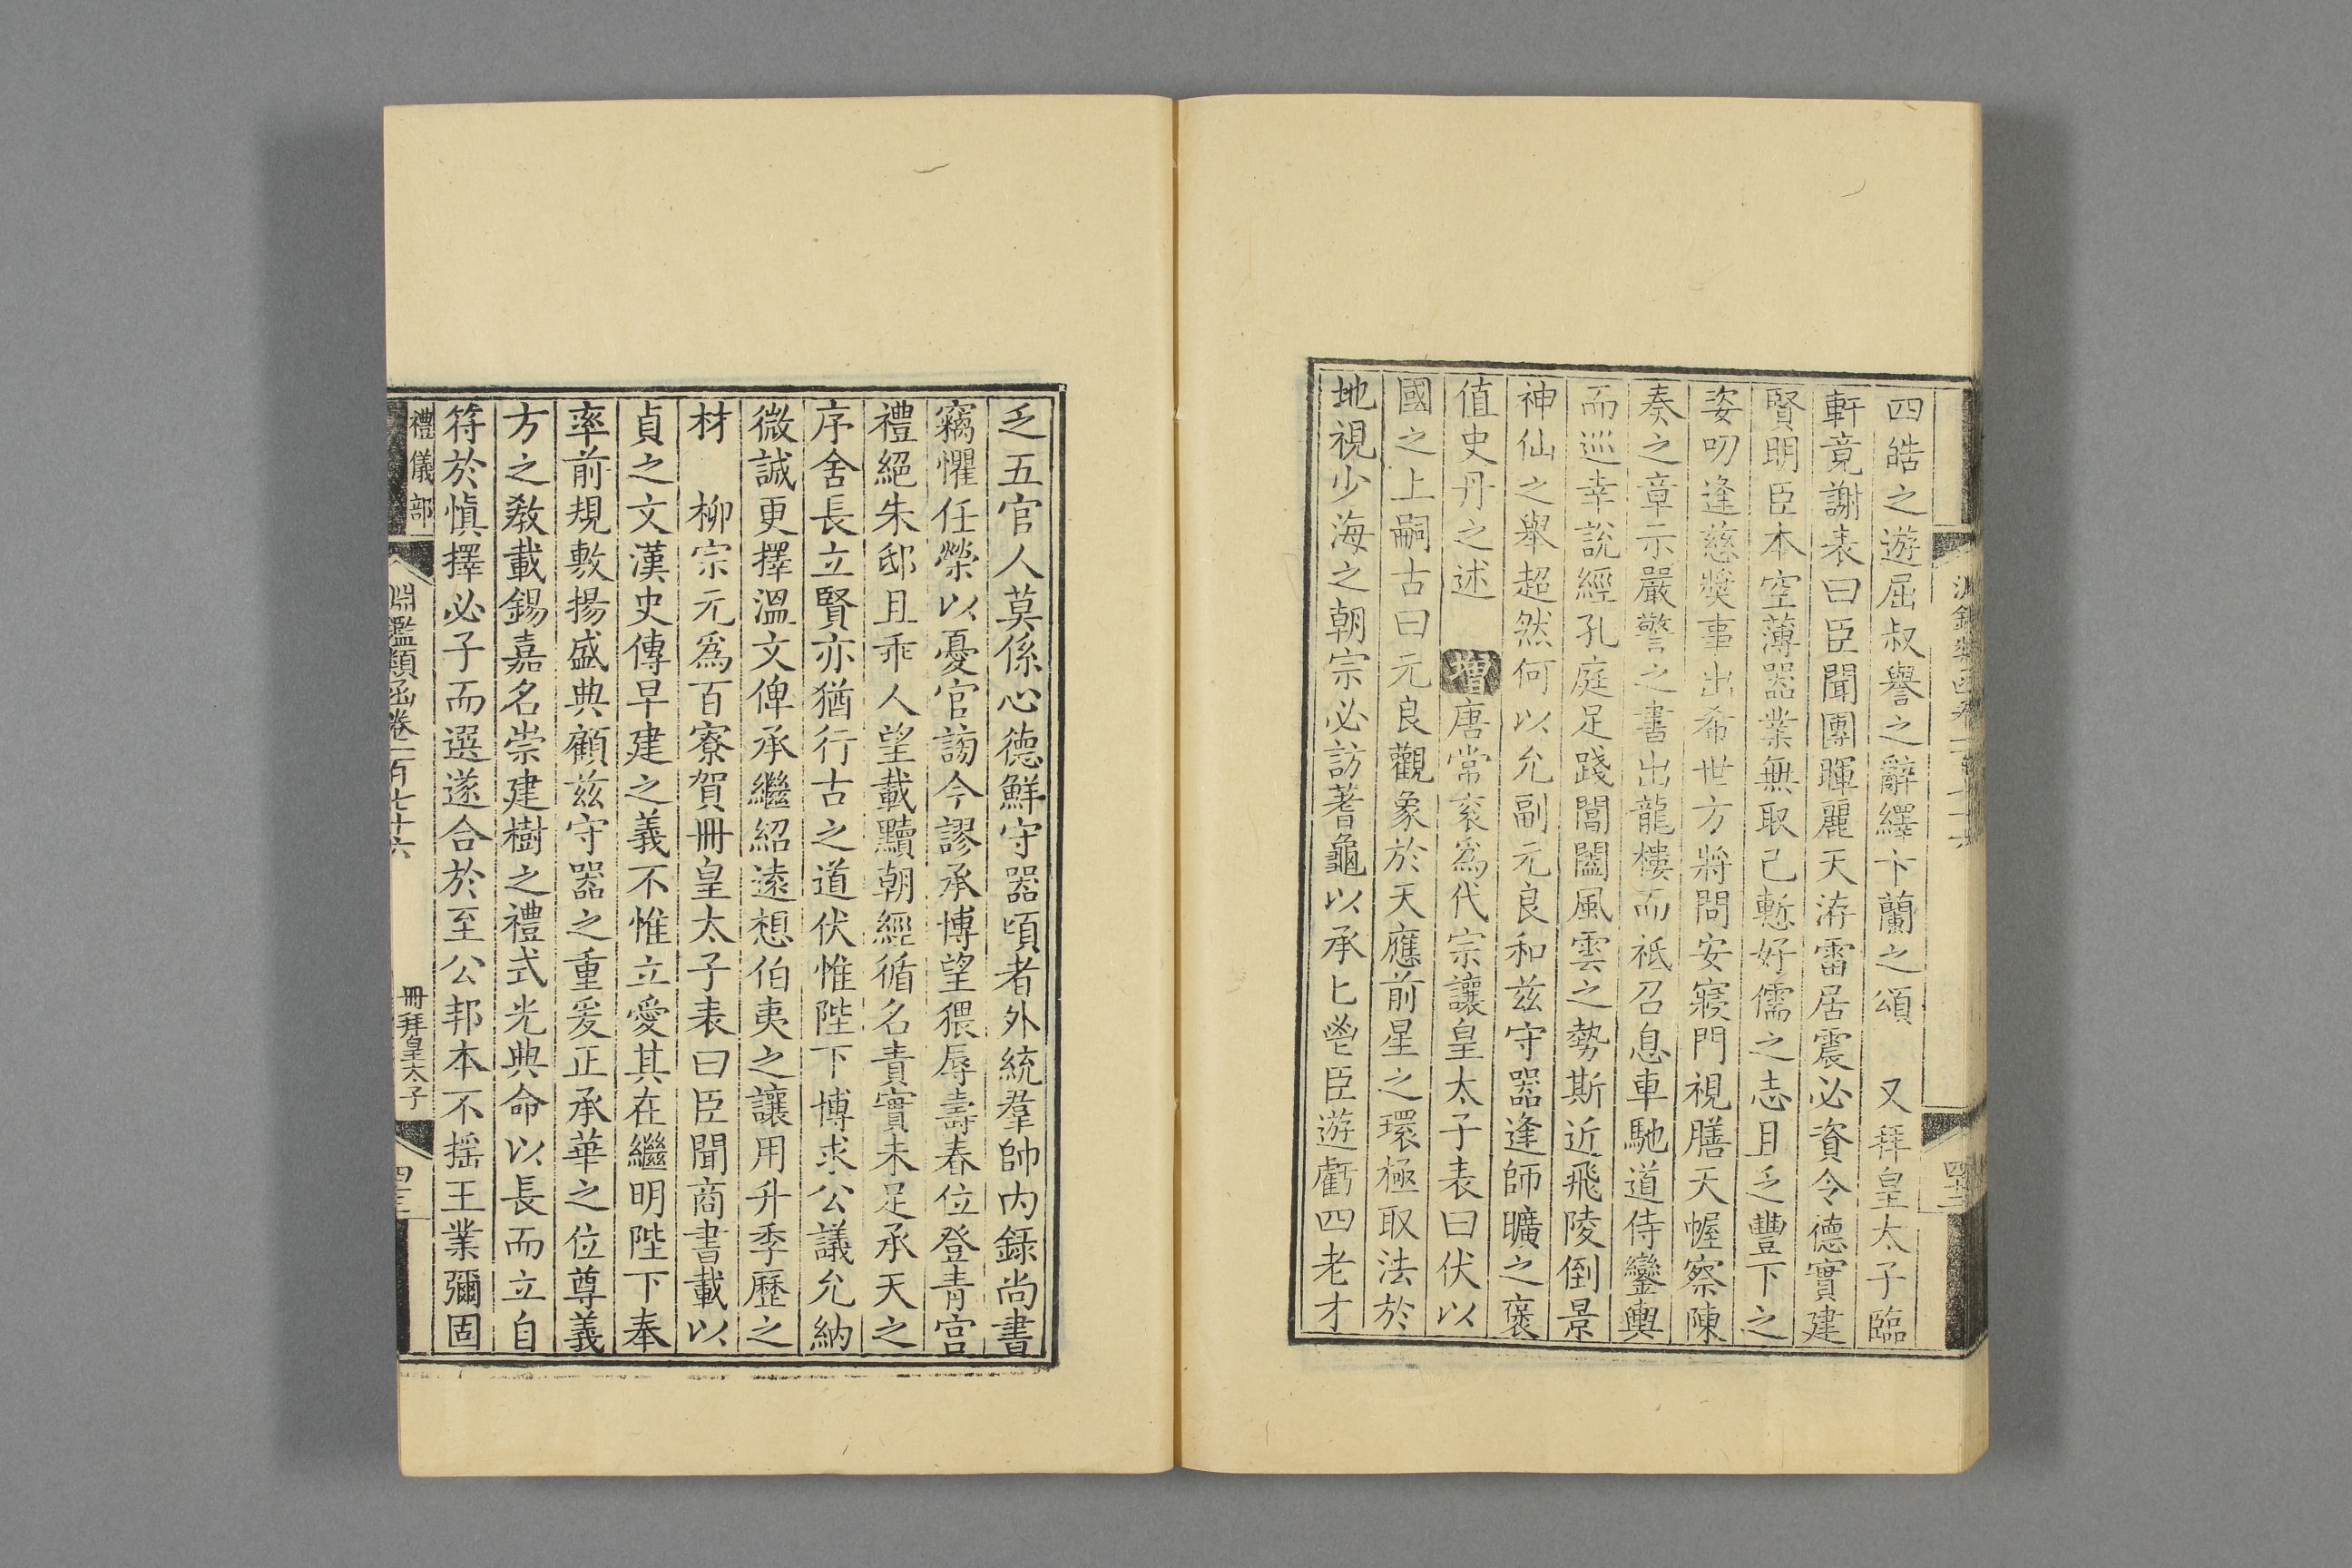 四皓之遊屈叔譽之辭繹卞蘭之頌　又拜皇太子臨
軒竟謝表曰臣聞團暉麗天洊雷居震必資令德實建
賢明臣本空薄器業無取已慙好儒之志且乏豐下之
姿叨逢慈奬事出希世方將問安寢門視膳天幄察陳
奏之章示嚴警之書出龍樓而祗召息車馳道侍鑾輿
而巡幸説經孔庭足踐閶闔風雲之勢斯近飛陵倒景
神仙之舉超然何以允副元良和兹守器逢師曠之褒
值史丹之述　增唐常衮爲代宗讓皇太子表曰伏以
國之上嗣古曰元良觀象於天應前星之環極取法於
地視少海之朝宗必訪蓍龜以承匕鬯臣遊虧四老才
乏五官人莫係心德鮮守器頃者外統羣帥内録尚書
竊懼任榮以憂官謗今謬承博望猥辱壽春位登青宫
禮絶朱邸且乖人望載黷朝經循名責實未足承天之
序舍長立賢亦猶行古之道伏惟陛下博求公議允納
微誠更擇溫文俾承繼紹遠想伯夷之讓用升季歷之
材　柳宗元爲百寮賀冊皇太子表曰臣聞商書載以
貞之文漢史傳早建之義不惟立愛其在繼明陛下奉
率前規敷揚盛典顧兹守器之重爰正承華之位尊義
方之敎載錫嘉名崇建樹之禮式光典命以長而立自
符於愼擇必子而選遂合於至公邦本不揺王業彌固
禮儀部
淵鑑類函卷一百七十六
冊拜皇太子
四三